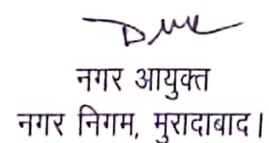 नगर आयुक्त
नगर निगम, मुरादाबाद।